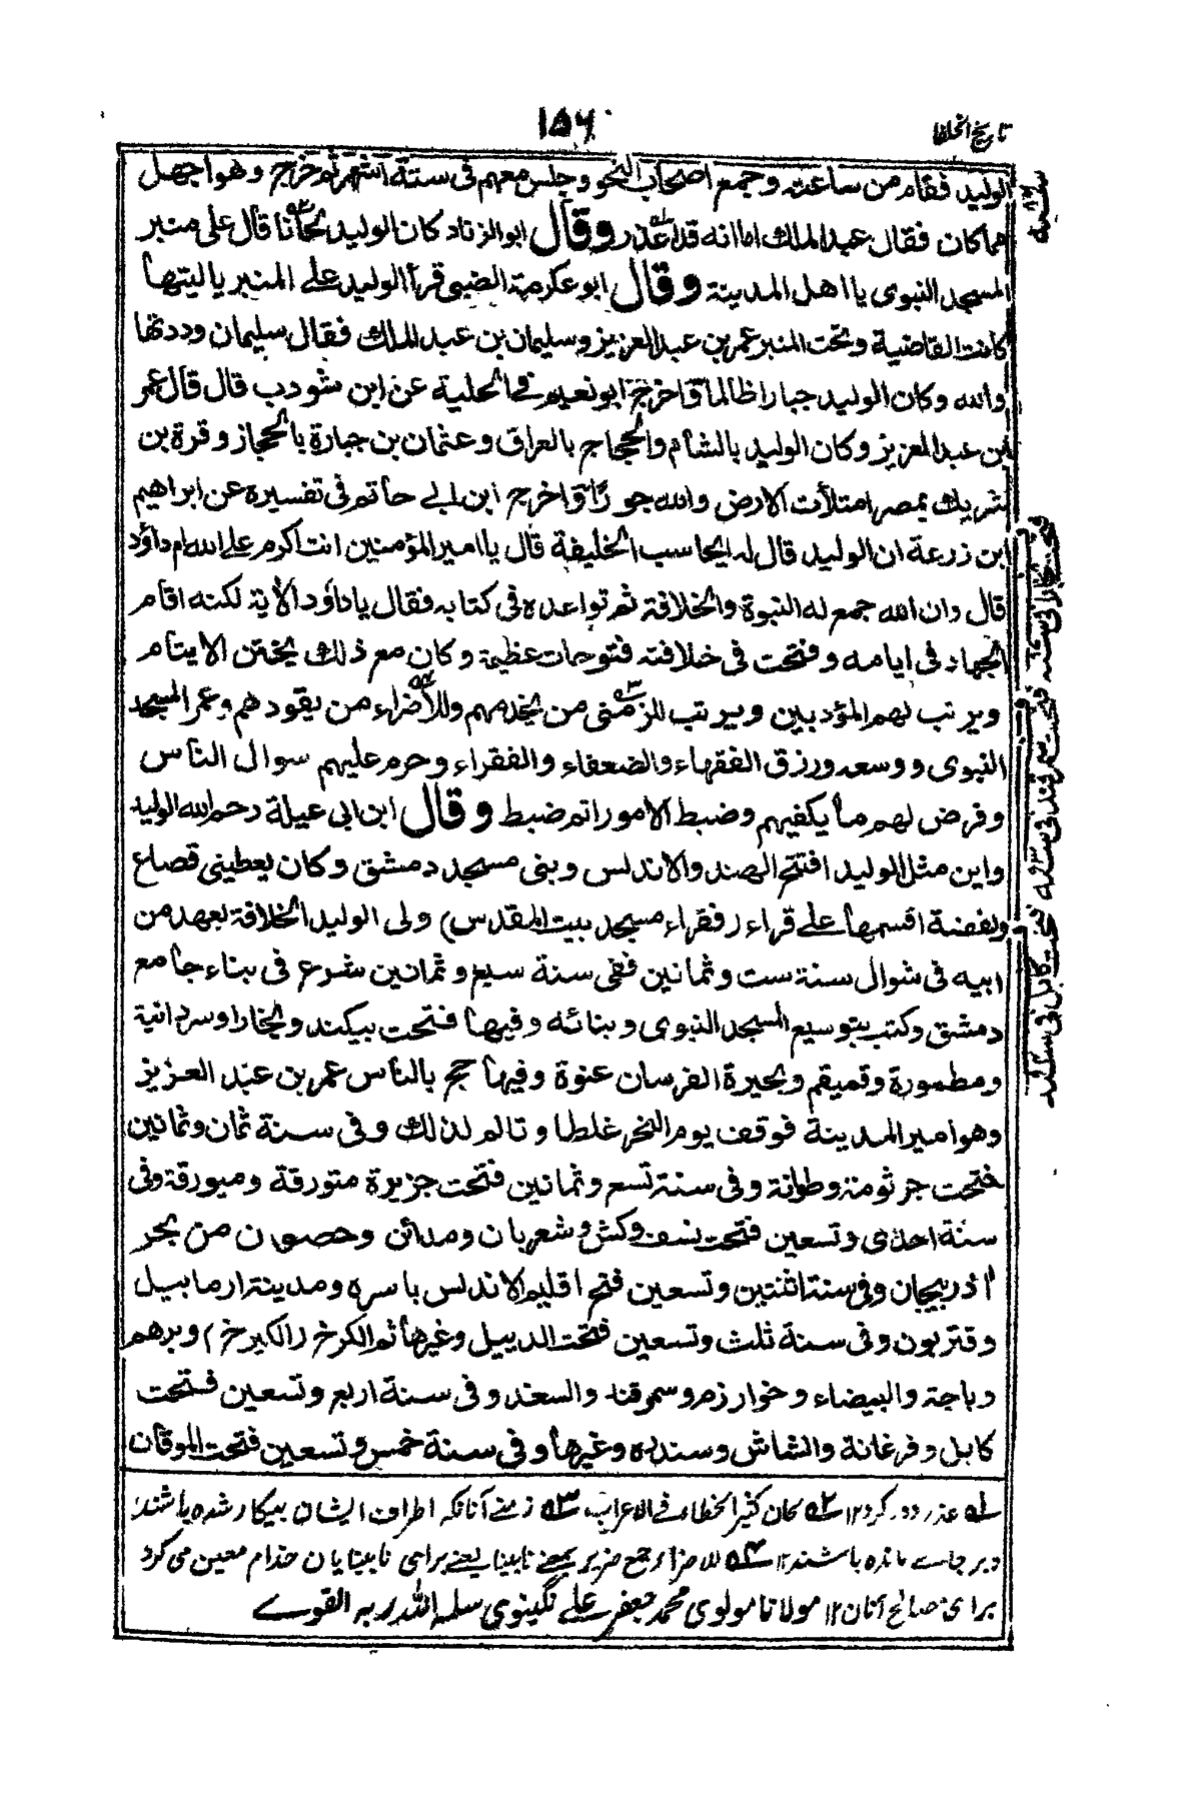 تاریخ الخلفا
۱۵۶
الولید فقام من ساعته وجمع اصحاب النحو وجلس معهم فی ستة اشهر ثم خرج وهو اجهل
مما کان فقال عبد الملك اما انه قد اعذر وقال ابو الزناد کان الولید لحانا قال علی منبر
المسجد النبوی یا اهل المدینة وقال ابو عکرمة الضبی قرأ الولید علے المنبر یا لیتها
کانت القاضیة وتحت المنبر عمر بن عبد العزیز وسلیمان بن عبد الملك فقال سلیمان وددتها
والله وکان الولید جبارا ظالما واخرج ابو نعیم فی الحلیة عن ابن شودب قال قال عمر
بن عبد العزیز وکان الولید بالشام والحجاج بالعراق وعثمان بن جبارة بالحجاز وقرة بن
شریك بمصر امتلأت الارض والله جورًا واخرج ابن ابی حاتم فی تفسیره عن ابراهیم
ابن زرعة ان الولید قال له ایحاسب الخلیفة قال یا امیر المؤمنین انت اکرم علے الله ام داؤد
قال وان الله جمع له النبوة والخلافة ثم تواعده فی کتابه فقال یا داؤد الأیة لکنه اقام
الجهاد فی ایامه وفتحت فی خلافته فتوحات عظیمة وکان مع ذلك یختن الایتام
ویرتب لهم المؤدبین ویرتب للزمنی من یخدمهم وللأضراء من یقودهم وعمر المسجد
النبوی ووسعه ورزق الفقهاء والضعفاء والفقراء وحرم علیهم سوال الناس
وفرض لهم ما یکفیهم وضبط الامور اتم ضبط وقال ابن ابی عبلة رحم الله الولید
واین مثل الولید افتتح الهند والاندلس وبنی مسجد دمشق وکان یعطینی قصاع
الفضة اقسمها علے قراء (فقراء مسجد بیت المقدس) ولی الولید الخلافة بعهد من
ابیه فی شوال سنة ست وثمانین ففی سنة سبع وثمانین شرع فی بناء جامع
دمشق وکتب بتوسیع المسجد النبوی وبنائه وفیها فتحت بیکند وبخارا وسردانیة
ومطمورة وقمیقم وبحیرة الفرسان عنوة وفیها حج بالناس عمر بن عبد العزیز
وهو امیر المدینة فوقف یوم النحر غلطا وتالم لذلك وفی سنة ثمان وثمانین
فتحت جرثومة وطوانة وفی سنة تسع وثمانین فتحت جزیرة متورقة ومیورقة وفی
سنة احدی وتسعین فتحت نسف وکش وشعربان ومدائن وحصون من بحر
أذربیجان وفی سنة اثنتین وتسعین فتح اقلیم الاندلس باسره ومدینة ارمابیل
وقتربون وفی سنة ثلث وتسعین فتحت الدیبل وغیرها ثم الکرخ (الکیرخ) وبرهم
وباجة والبیضاء وخوارزم وسمرقند والسغد وفی سنة اربع وتسعین فتحت
کابل وفرغانة والشاش وسندره وغیرها وفی سنة خمس وتسعین فتحت الموقان
له عذر دور کرد ۱۲ ۲ه لحان کثیر الخطاء فی الاعراب ۳ه زمنے آنانکہ اطراف ایشان بیکار شده باشند
و بر جاے مانده باشند ۱۲ ۴ه للاضراء جمع ضریر بمعنے نابینا یعنے برای نابینایان خدام معین می کرد
برای مصالح آنان ۱۲ مولانا مولوی محمد جعفر علے نگینوی سلمه الله ربه القوے